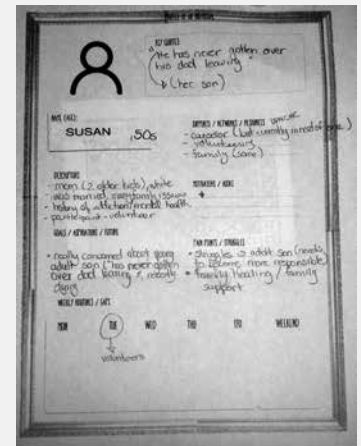 KEY QUOTES
"He has never gotten over
his dad leaving"
↳ (her son)
NAME / AGE:
SUSAN , 50s
SUPPORTS / NETWORKS / RESOURCES
- counselor (but currently in need of one)
- volunteers
- family (some)
DESCRIPTORS
- mom (2 older kids), white
- was married,
- history of addiction/mental health
- participant - volunteer
MOTIVATIONS /
+
GOALS / ASPIRATIONS / FUTURE
- really concerned about young
adult son ("has never gotten
over dad leaving" & recently
dying
PAIN POINTS / STRUGGLES
• struggles w adult son (needs
to become more responsible)
• family healing / family
support
WEEKLY ROUTINES / GAPS
MON TUE WED THU FRI WEEKEND
volunteers